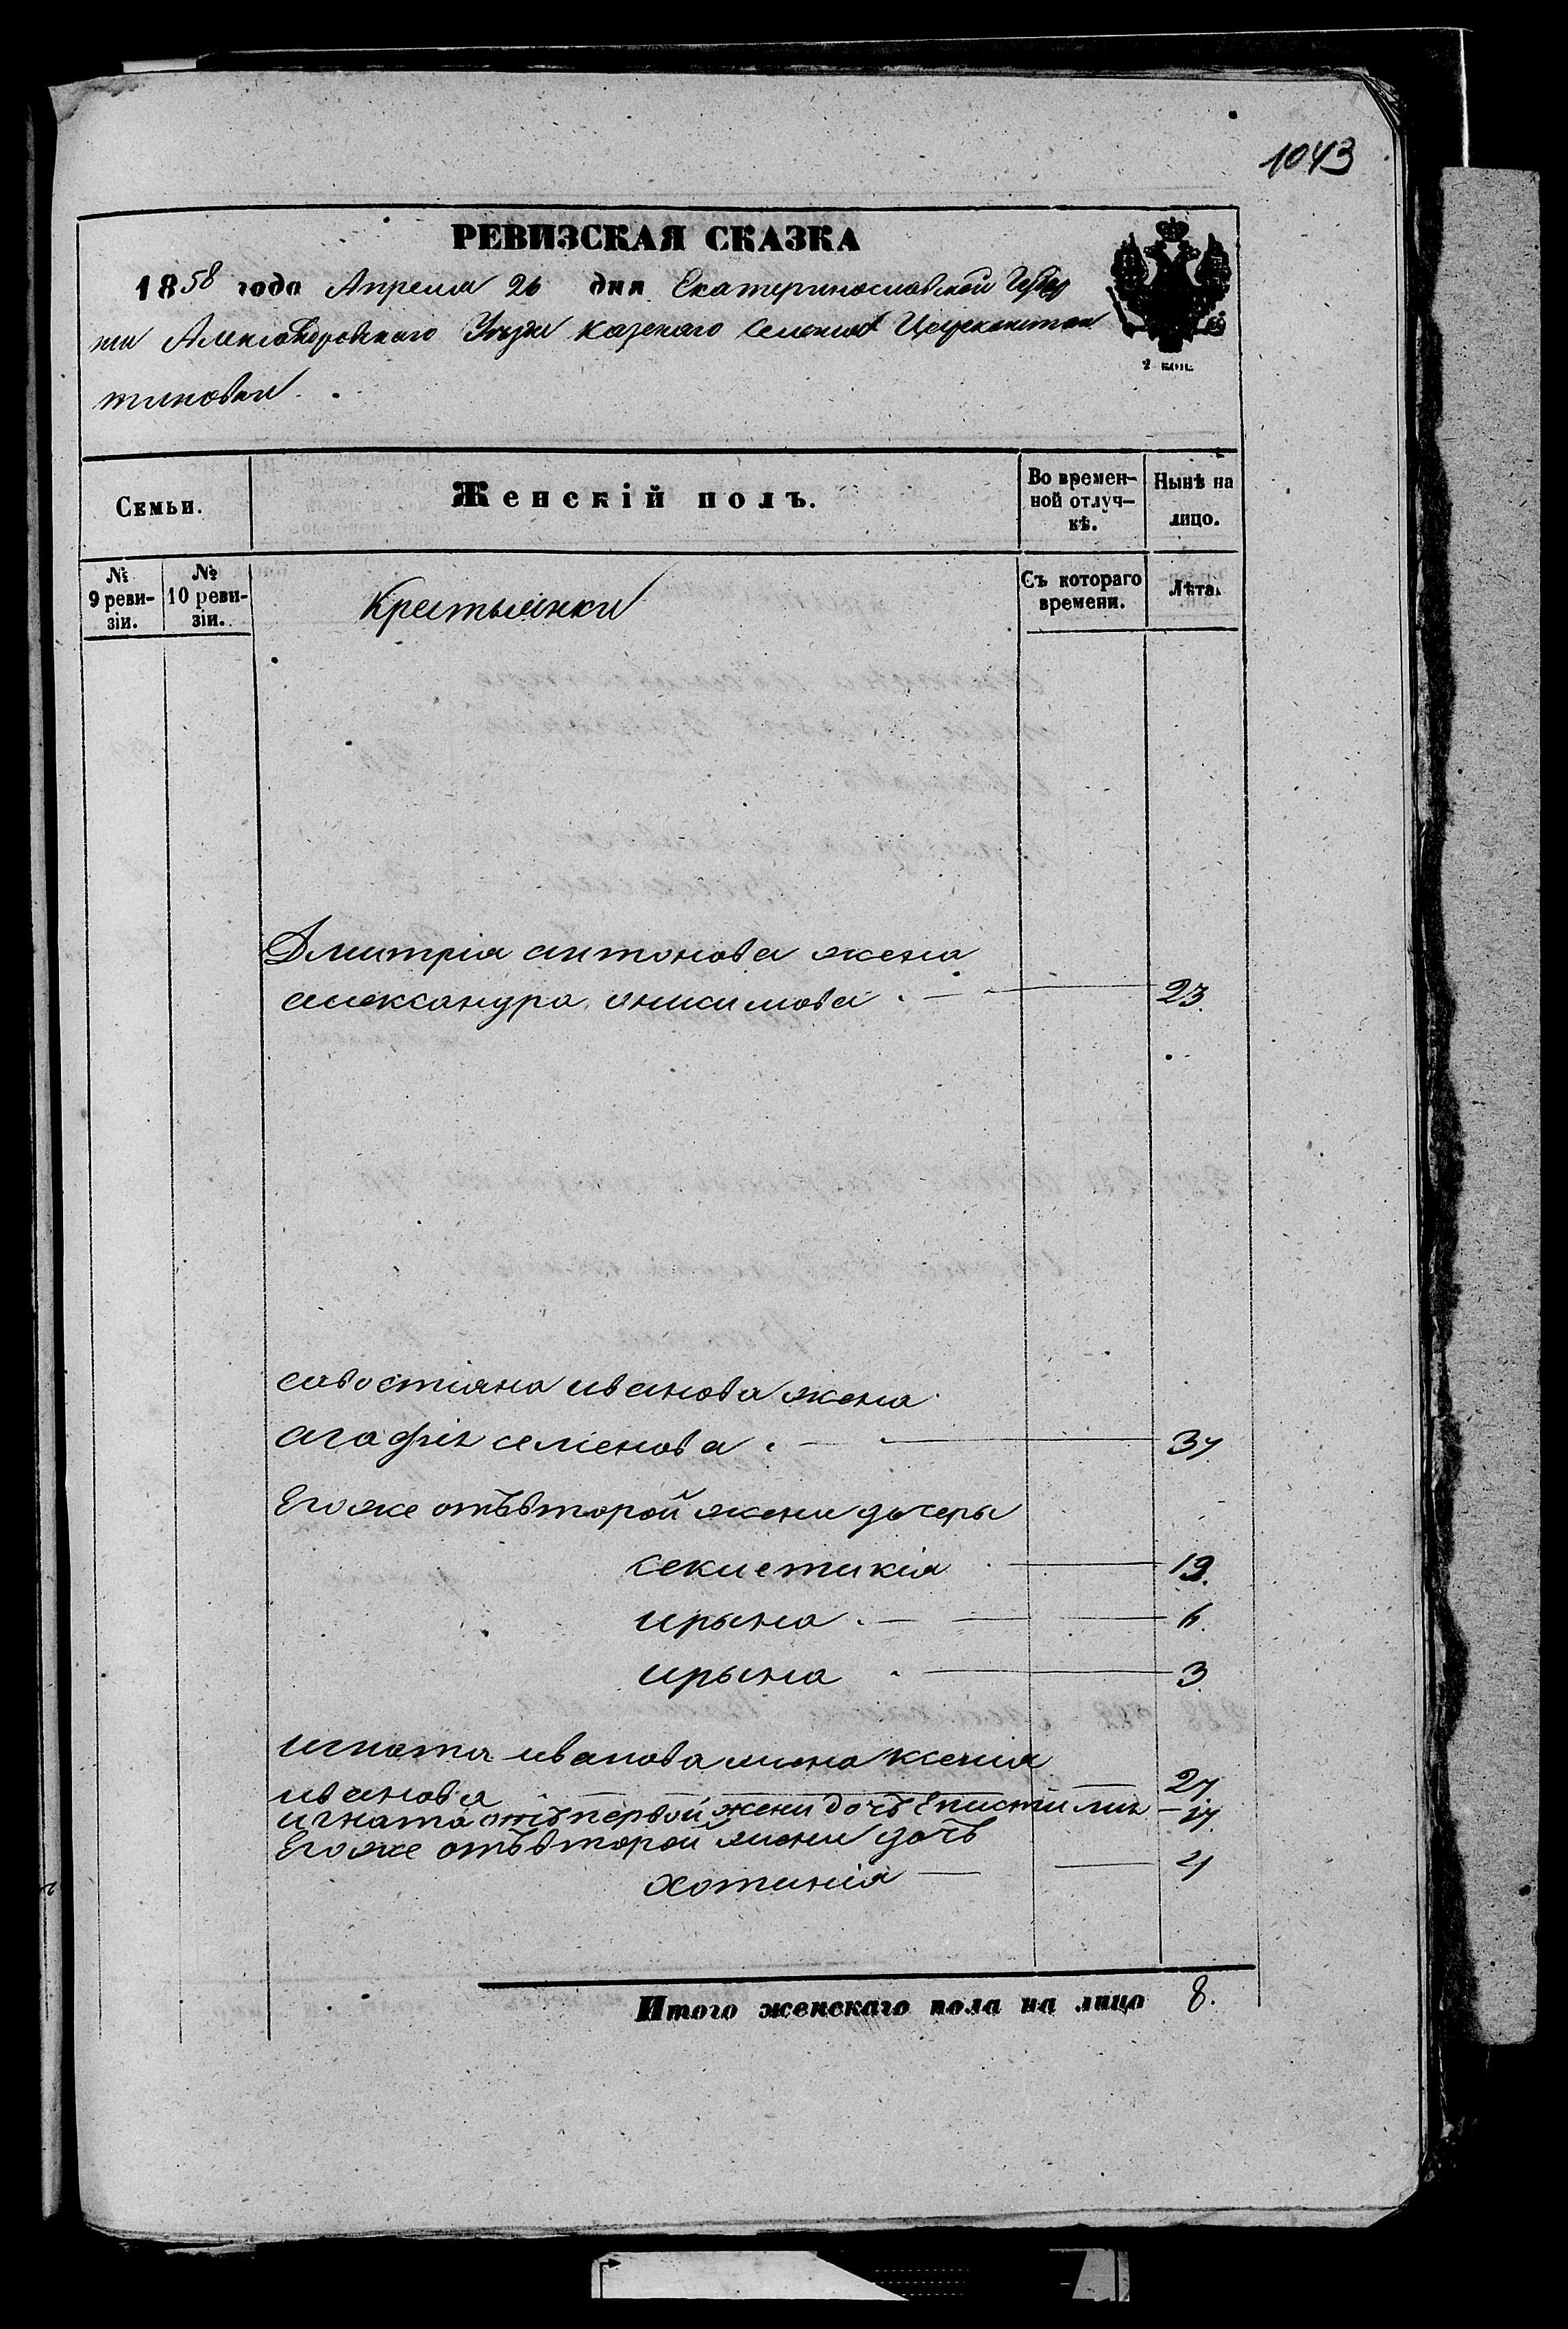 1043
РЕВИЗСКАЯ СКАЗКА
1858 года Апреля 26 дня Екатеринославской Губер
нии Александровского Уезда казенаго селения Цареконстан
тиновки
2 коп.
Семьи. Женскій полъ. Во времен- Нынѣ на
ной отлуч- лицо.
кѣ.
№ № Крестьянки Съ котораго Лѣта.
9 реви- 10 реви- времени.
зіи. зіи.
Дмитрія антонова жена
александра онисимова 23.
савостіяна иванова жена
агафія семенова 37
Его же отъ второй жени дочеры
секлетикія 19.
ирына 6.
ирына 3
игната иванова жена ксенія
иванова 27.
игната отъ первой жени дочъ Епистимия 17.
Его же отъ второй жени дочъ
хотинія 4
Итого женскаго пола на лицо 8.